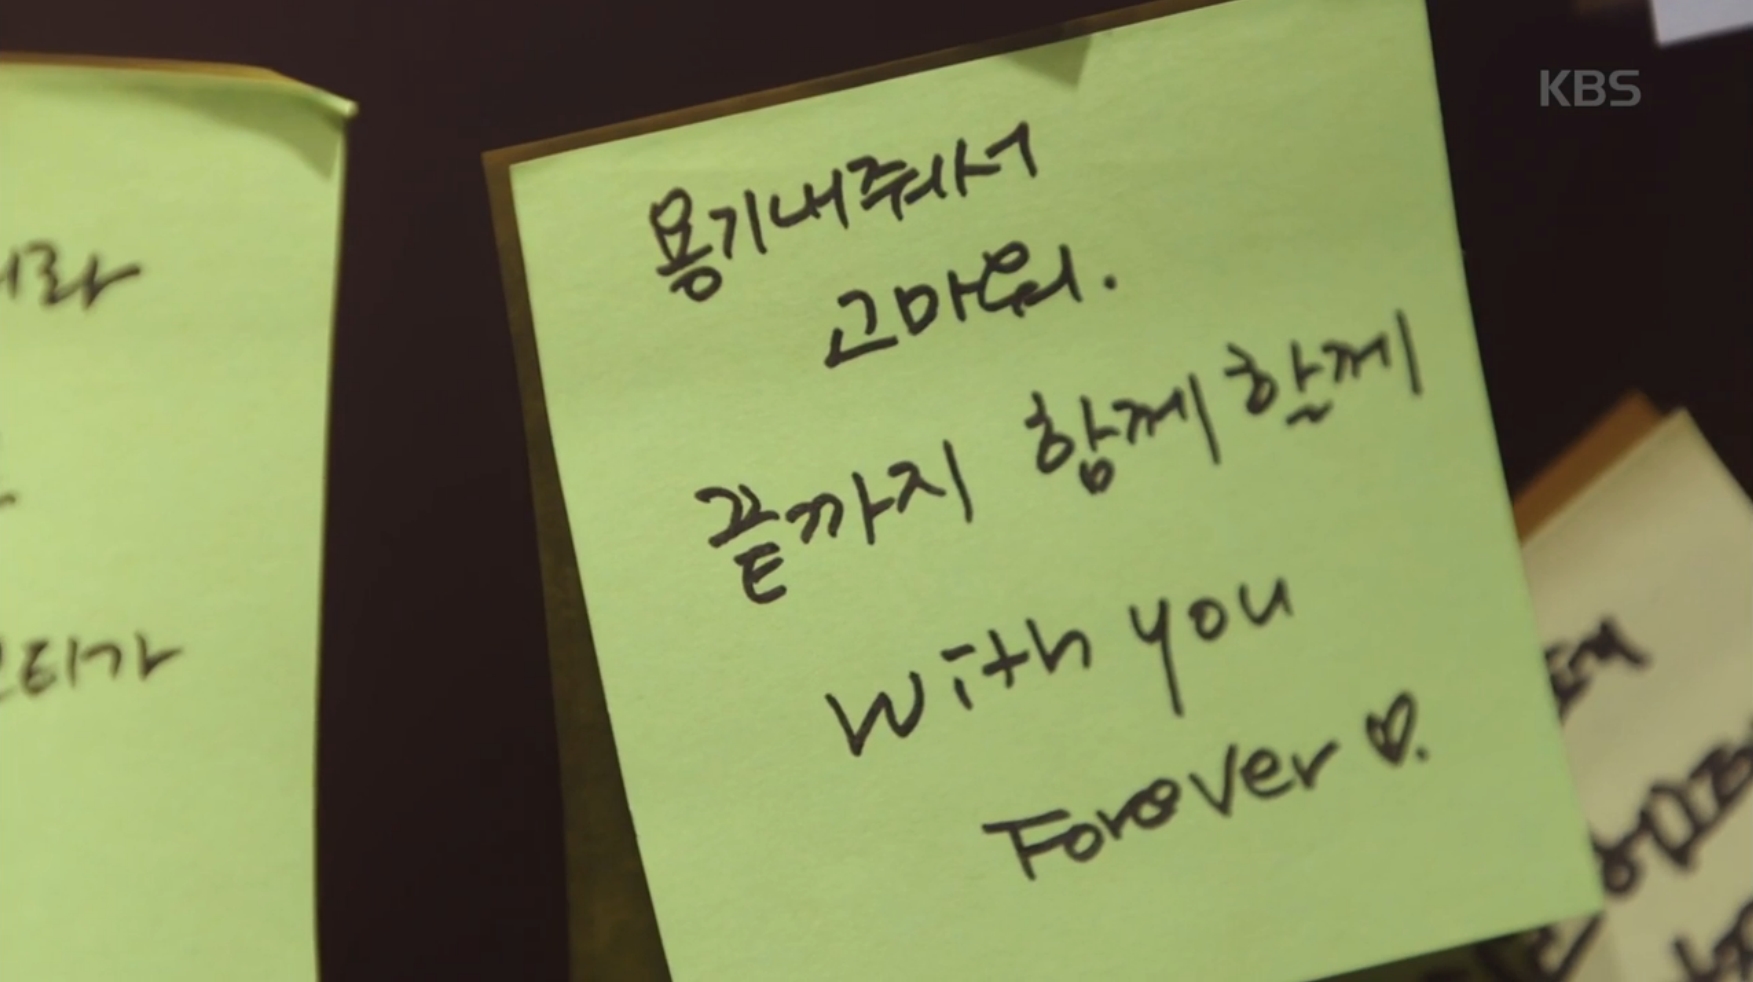 KBS
용기내줘서
고마워.
끝까지 함께할게
with you
Forever ♡.
티가